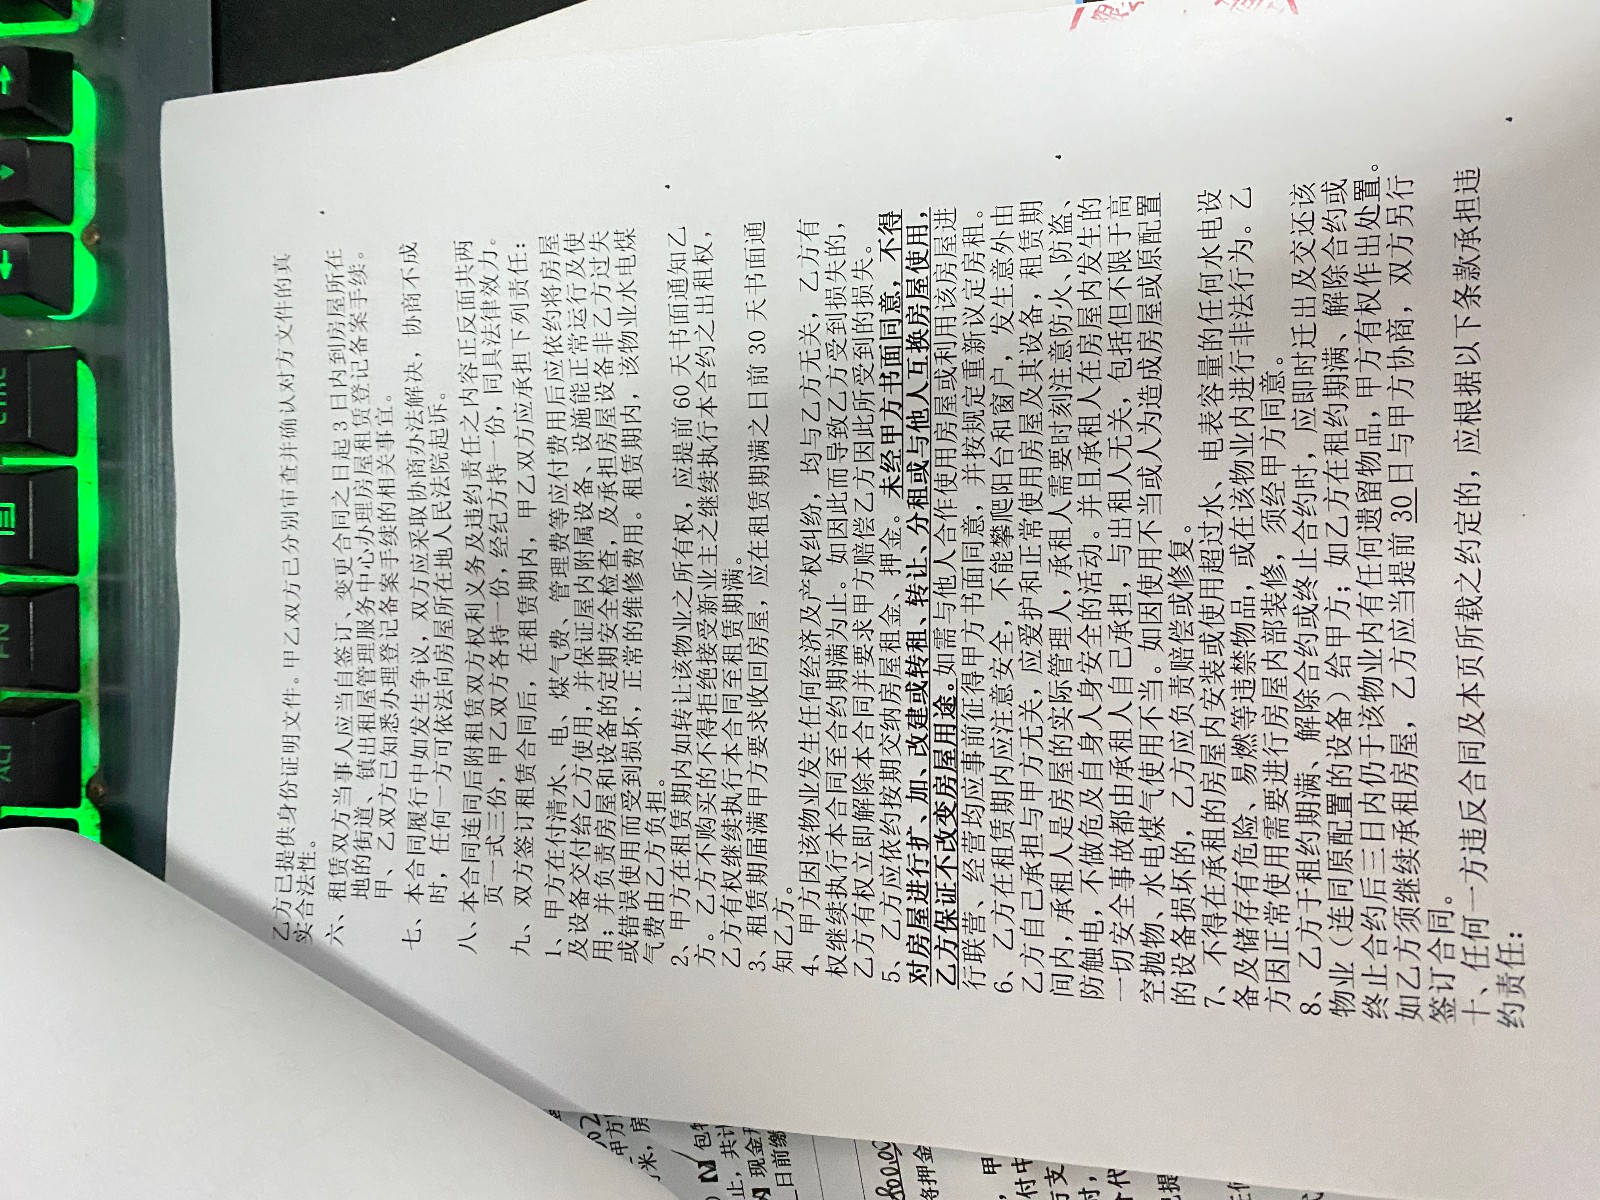 乙方已提供身份证明文件。甲乙双方已分别审查并确认对方文件的真
实合法性。
六、租赁双方当事人应当自签订、变更合同之日起 3 日内到房屋所在
地的街道、镇出租屋管理服务中心办理房屋租赁登记备案手续。
甲、乙双方已知悉办理登记备案手续的相关事宜。
七、本合同履行中如发生争议，双方应采取协商办法解决，协商不成
时，任何一方可依法向房屋所在地人民法院起诉。
八、本合同连同后附租赁双方权利义务及违约责任之内容正反面共两
页一式三份，甲乙双方各持一份，经纪方持一份，同具法律效力。
九、双方签订租赁合同后，在租赁期内，甲乙双方应承担下列责任：
1、甲方在付清水、电、煤气费、管理费等应付费用后应依约将房屋
及设备交付给乙方使用，并保证屋内附属设备、设施能正常运行及使
用；并负责房屋和设备的定期安全检查，及承担房屋设备非乙方过失
或错误使用而受到损坏，正常的维修费用。租赁期内，该物业水电煤
气费由乙方负担。
2、甲方在租赁期内如转让该物业之所有权，应提前 60 天书面通知乙
方。乙方不购买的不得拒绝接受新业主之继续执行本合约之出租权，
乙方有权继续执行本合同至租赁期满。
3、租赁期届满甲方要求收回房屋，应在租赁期满之日前 30 天书面通
知乙方。
4、甲方因该物业发生任何经济及产权纠纷，均与乙方无关，乙方有
权继续执行本合同至合约期满为止。如因此而导致乙方受到损失的，
乙方有权立即解除本合同并要求甲方赔偿乙方因此所受到的损失。
5、乙方应依约按期交纳房屋租金、押金。未经甲方书面同意，不得
对房屋进行扩、加、改建或转租、转让、分租或与他人互换房屋使用，
乙方保证不改变房屋用途。如需与他人合作使用房屋或利用该房屋进
行联营、经营均应事前征得甲方书面同意，并按规定重新议定房租。
6、乙方在租赁期内应注意安全，不能攀爬阳台和窗户，发生意外由
乙方自己承担与甲方无关，应爱护和正常使用房屋及其设备，租赁期
间内，承租人是房屋的实际管理人，承租人需要时刻注意防火、防盗、
防触电，不做危及自身人身安全的活动。并且承租人在房屋内发生的
一切安全事故都由承租人自己承担，与出租人无关，包括但不限于高
空抛物、水电煤气使用不当。如因使用不当或人为造成房屋或原配置
的设备损坏的，乙方应负责赔偿或修复。
7、不得在承租的房屋内安装或使用超过水、电表容量的任何水电设
备及储存有危险、易燃等违禁物品，或在该物业内进行非法行为。乙
方因正常使用需要进行房屋内部装修，须经甲方同意。
8、乙方于租约期满、解除合约或终止合约时，应即时迁出及交还该
物业（连同原配置的设备）给甲方；如乙方在租约期满、解除合约或
终止合约后三日内仍于该物业内有任何遗留物品，甲方有权作出处置。
如乙方须继续承租房屋，乙方应当提前 30 日与甲方协商，双方另行
签订合同。
十、任何一方违反合同及本页所载之约定的，应根据以下条款承担违
约责任：